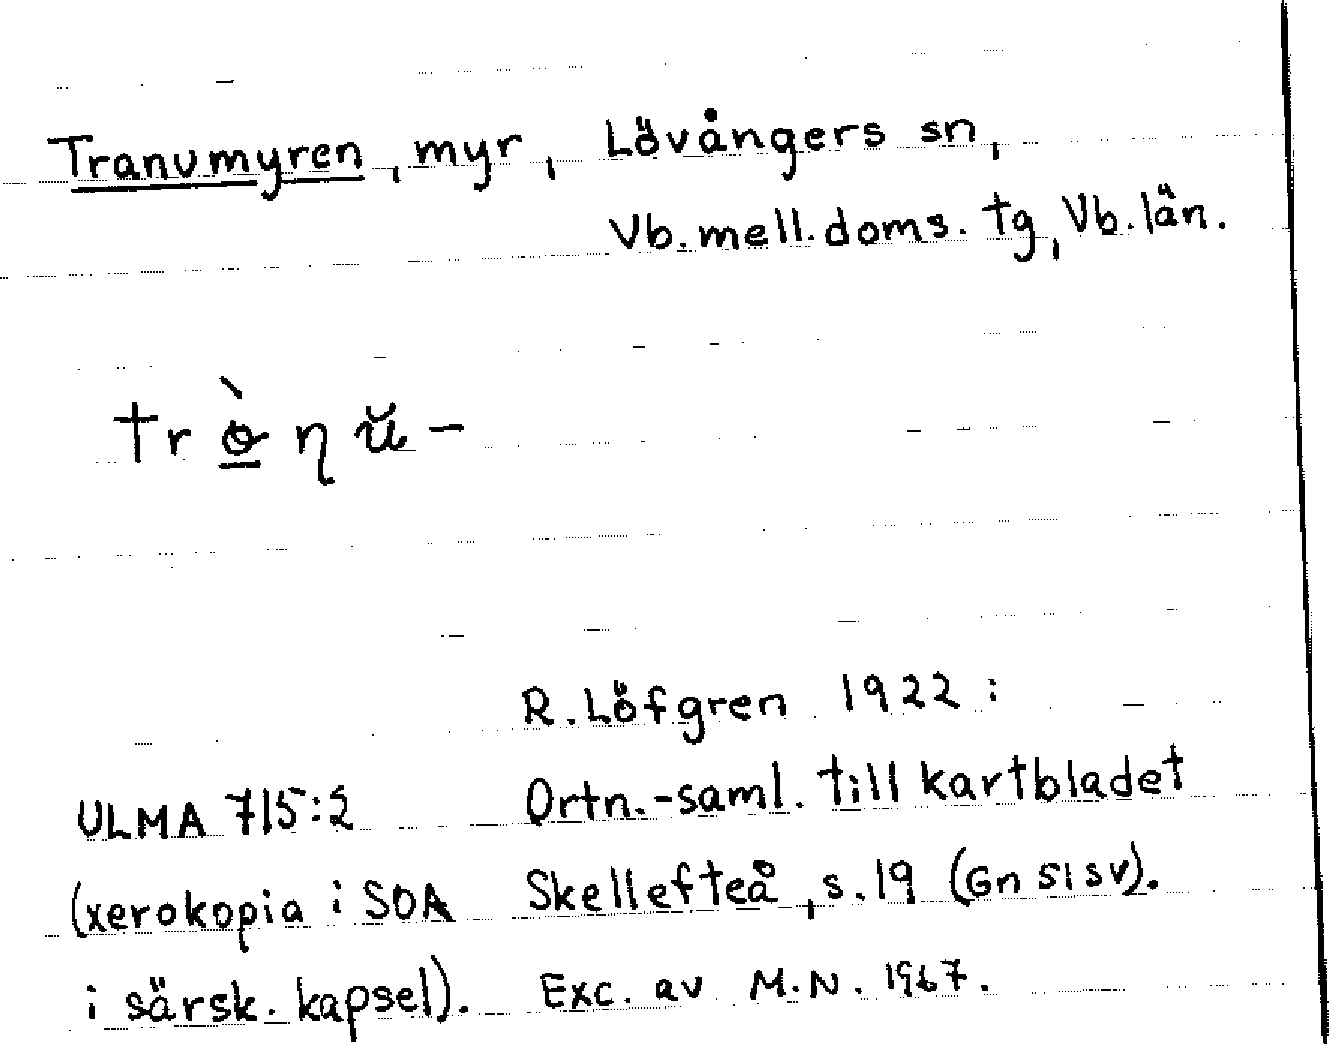 Tranumyren, myr, Lövångers sn,
Vb. mell. doms. tg, Vb. län.
trò̱ηŭ-
R. Löfgren 1922:
ULMA 715:2 Ortn.-saml. till kartbladet
(xerokopia i SOA Skellefteå, s. 19 (Gn 51 sv).
i särsk. kapsel). Exc. av M.N. 1967.